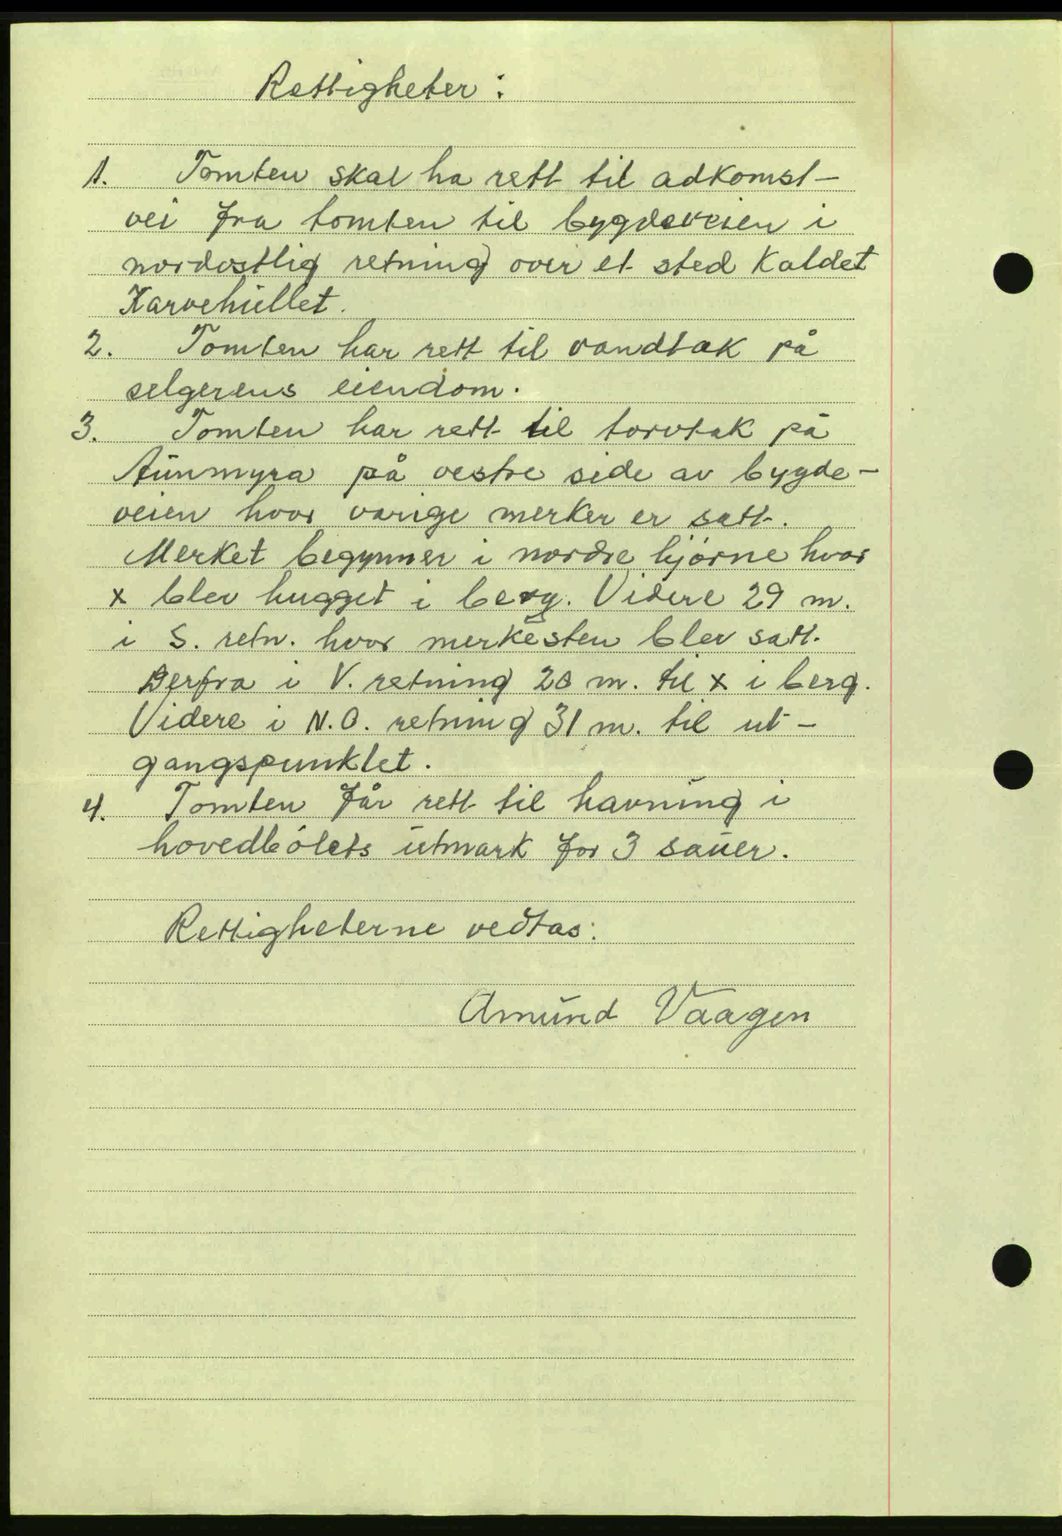 Rettigheter:
1. Tomten skal ha rett til adkomst-
vei fra tomten til bygdeveien i
nordostlig retning over et sted Kaldet
Karvehullet.
2. Tomten har rett til vandtak på
selgerens eiendom.
3. Tomten har rett til torvtak på
Aunmyra på vestre side av bygde-
veien hvor varige merker er satt.
Merket begynner i nordre hjørne hvor
x blev hugget i berg. Videre 29 m.
i S. retn. hvor merkesten blev satt.
Derfra i V. retning 20 m. til x i berg.
Videre i N.O. retning 31 m. til ut-
gangspunktet.
4. Tomten får rett til havning i
hovedbólets utmark for 3 sauer.
Rettigheterne vedtas:
Amund Vaagen